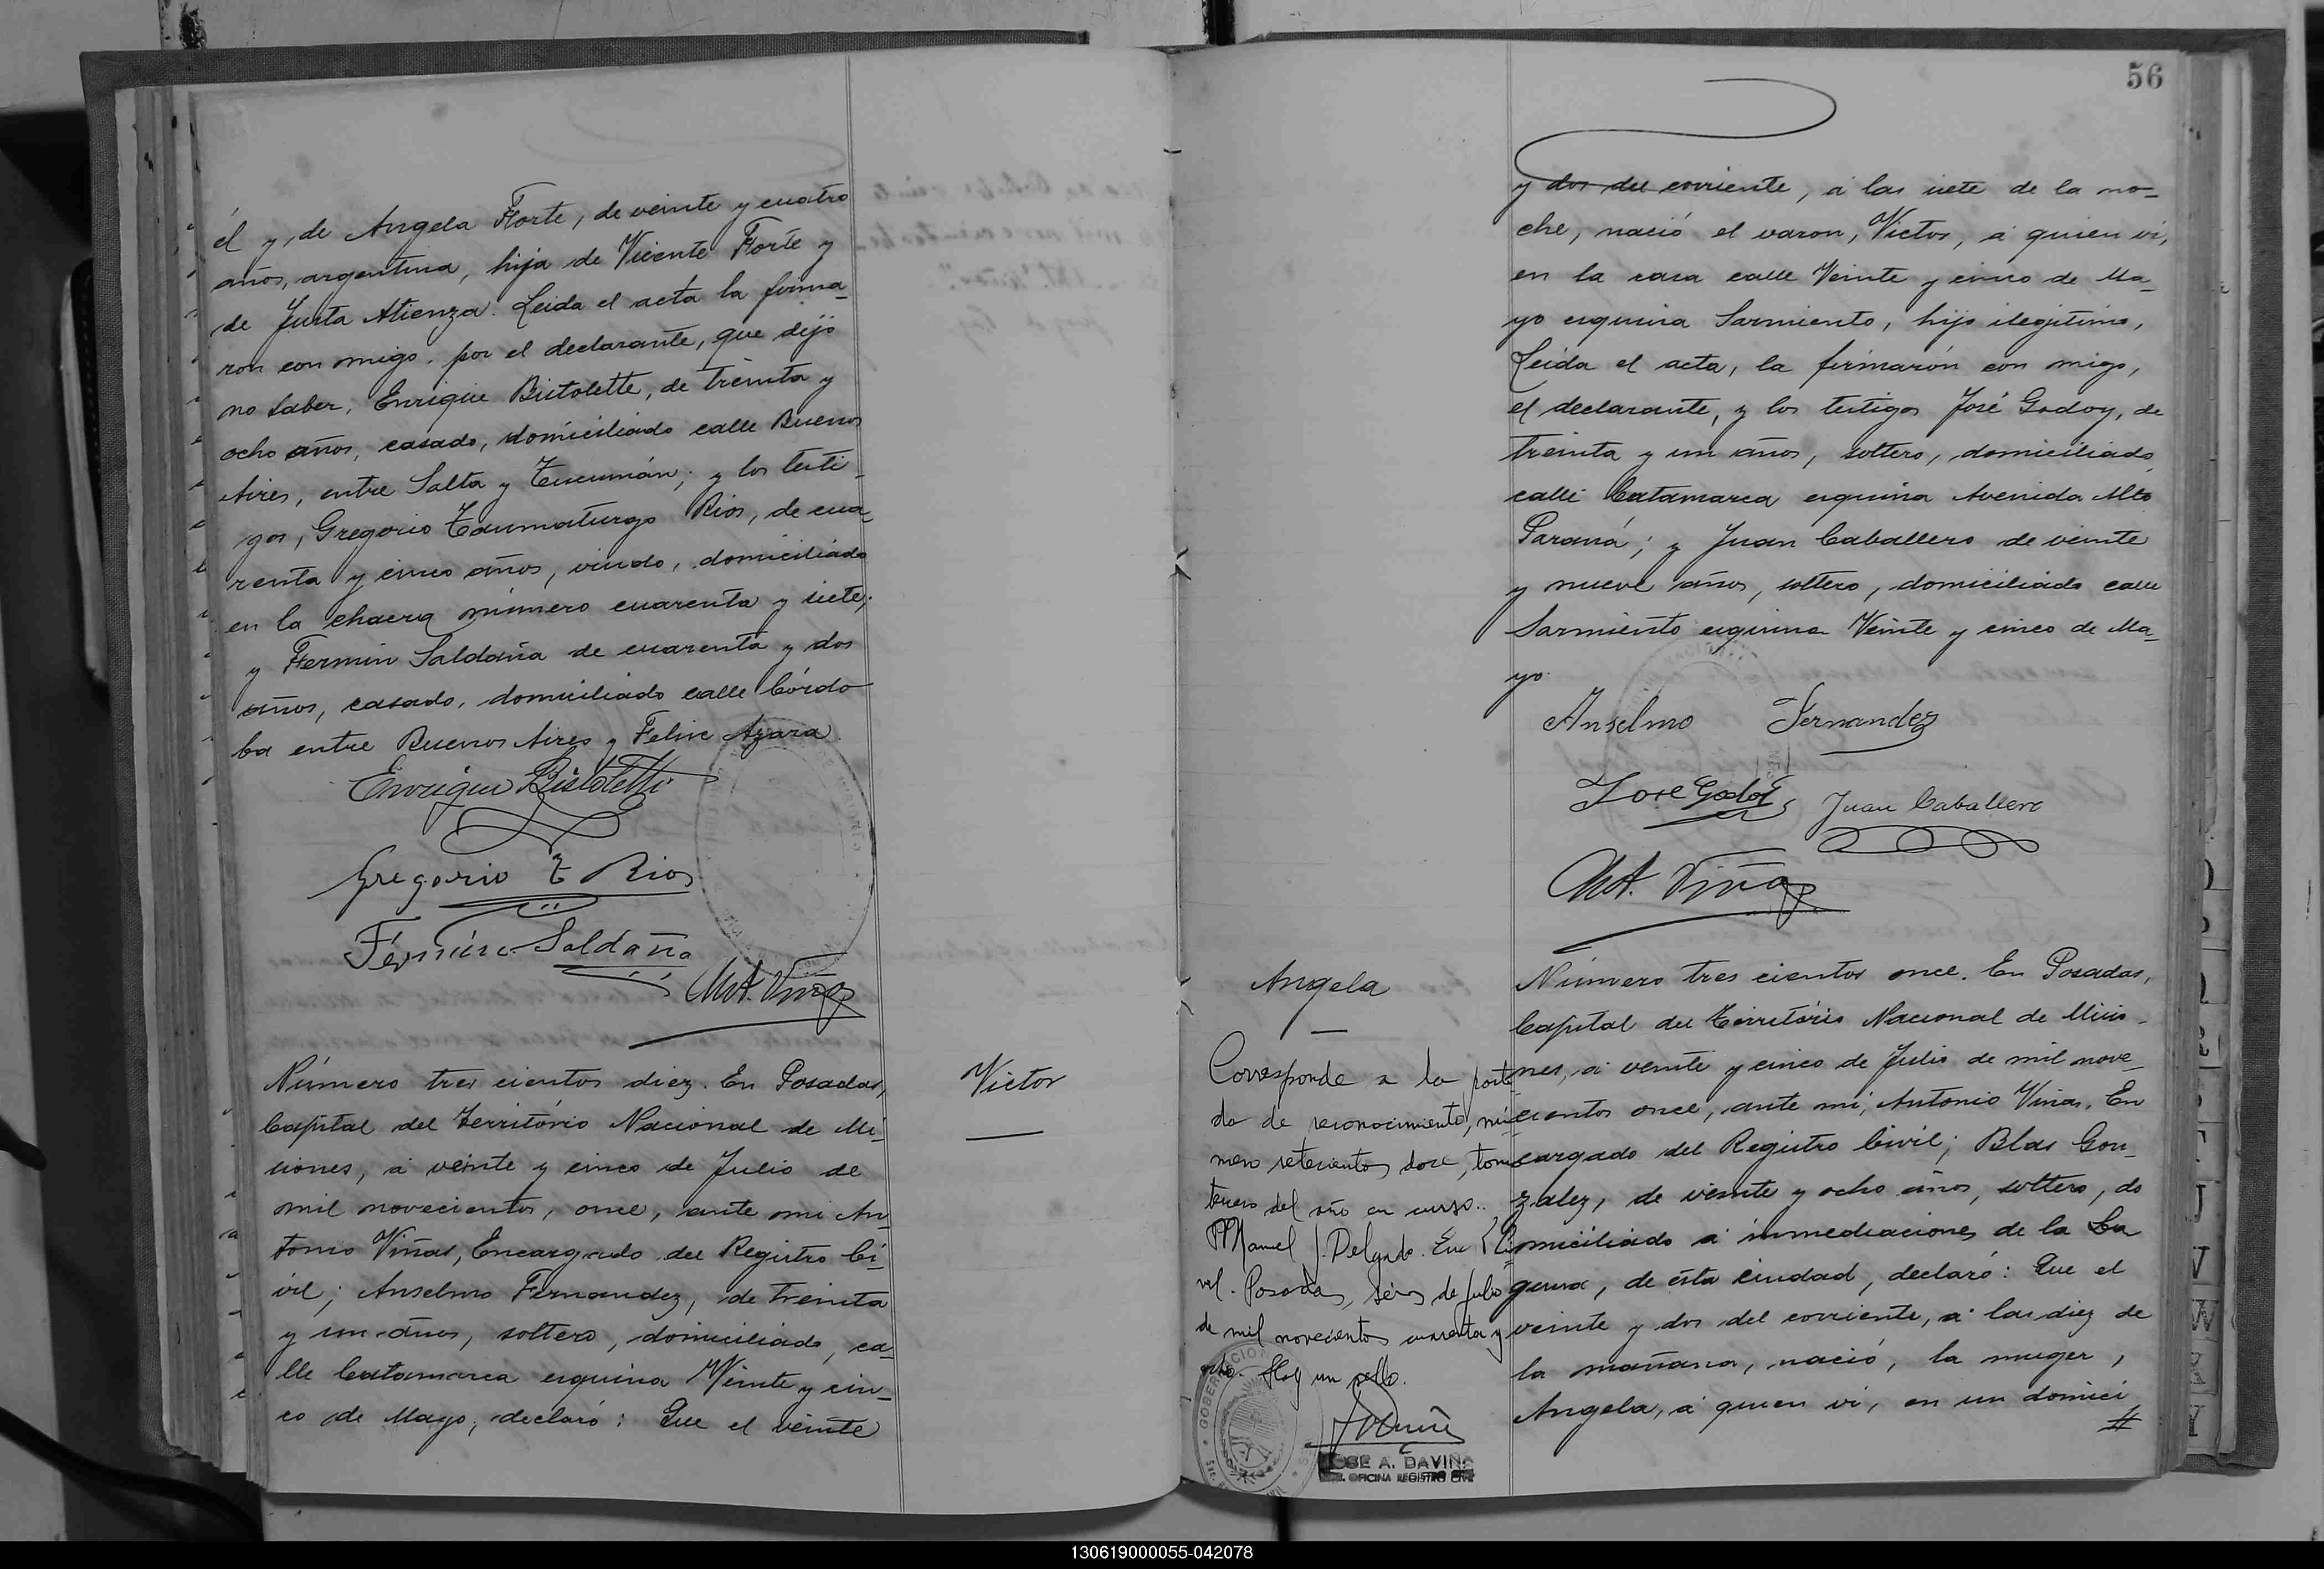 él y, de Angela Florte, de veinte y cuatro
años, argentina, hija de Vicente Florte y
de Justa Atienza. Leida el acta la firma-
ron con migo, por el declarante, que dijo
no saber, Enrique Bistolette, de treinta y
ocho años, casado, domiciliado calle Buenos
Aires, entre Salta y Tucumán; y los testi-
gos, Gregorio Taumaturgo Rios, de cua-
renta y cinco años, viudo, domiciliado
en la chacra número cuarenta y siete;
y Fermin Saldaña de cuarenta y dos
años, casado, domiciliado calle Córdo-
ba entre Buenos Aires y Felix Azara
Enrique Bistoletti
Gregorio T Rios
Fermin Saldaña
Ant. Viñas
Victor
Número tres cientos diez. En Posadas,
Capital del Território Nacional de Mi-
siones, á veinte y cinco de Julio de
mil novecientos, once, ante mi An-
tonio Viñas, Encargado del Registro Ci-
vil; Anselmo Fernandez, de treinta
y un años, soltero, domiciliado, ca-
lle Catamarca esquina Veinte y cin-
co de Mayo, declaró: Que el veinte
56
y dos del corriente, á las siete de la no-
che, nació el varon, Victor, á quien vi,
en la casa calle Veinte y cinco de Ma-
yo esquina Sarmiento, hijo ilegitimo,
Leida el acta, la firmarón con migo,
el declarante, y los testigos José Godoy, de
treinta y un años, soltero, domiciliado
calle Catamarca esquina Avenida Alto
Paraná; y Juan Caballero de veinte
y nueve años, soltero, domiciliado calle
Sarmiento esquina Veinte y cinco de Ma-
yo.
Anselmo Fernandez
Jose Godoy
Juan Caballero
Ant. Viñas
Angela
Corresponde a la parti
da de reconocimiento, nú-
mero setecientos doce, tomo
tercero del año en curso..
Manuel J. Delgado. Enc R Ci-
vil. Posadas, seis de julio
de mil novecientos cuarenta y
ocho. Hay un sello.
JOSE A. DAVIÑA
OFICINA REGISTRO CIVIL
Número tres cientos once. En Posadas,
Capital del Território Nacional de Misio-
nes, á veinte y cinco de Julio de mil nove-
cientos once, ante mi, Antonio Viñas, En
cargado del Registro Civil; Blas Gon-
zalez, de veinte y ocho años, soltero, do
miciliado á inmediaciones de la La
guna, de ésta ciudad, declaró: Que el
veinte y dos del corriente, á las diez de
la mañana, nació, la muger,
Angela, á quien vi, en un domici
#
130619000055-042078